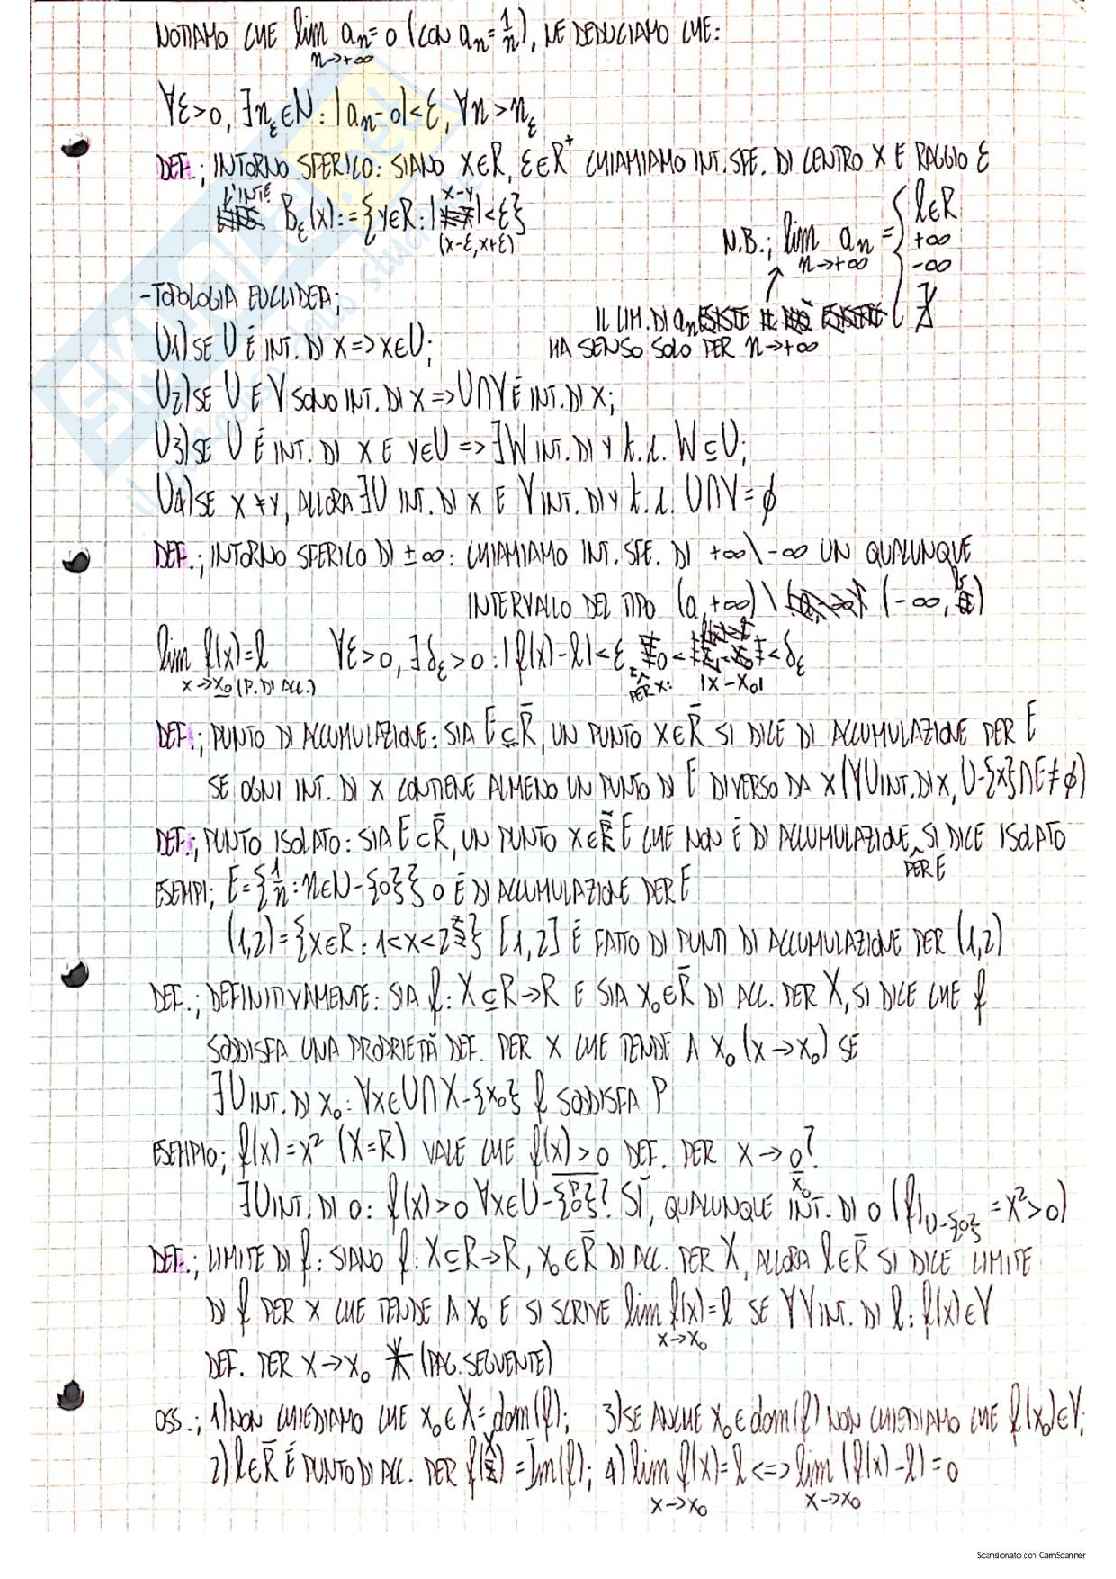 NOTIAMO CHE lim aₙ = 0 (CON aₙ = 1/n), NE DEDUCIAMO CHE:
n→+∞
∀ε>0, ∃n_ε∈N : |aₙ-0|<ε, ∀n>n_ε
DEF.; INTORNO SFERICO: SIANO X∈R, ε∈R⁺ CHIAMIAMO INT. SFE. DI CENTRO X E RAGGIO ε
L'INTE B_ε(x):={y∈R:|x-y|<ε}
(x-ε, x+ε)
N.B.; lim aₙ = { l∈R
n→+∞ +∞
-∞
∄
-TOPOLOGIA EUCLIDEA;
IL LIM. DI aₙ
HA SENSO SOLO PER n→+∞
U1) SE U É INT. DI X => X∈U;
U2) SE U E V SONO INT. DI X => U∩V É INT. DI X;
U3) SE U É INT. DI X E Y∈U => ∃W INT. DI Y t.c. W⊆U;
U4) SE X≠Y, ALLORA ∃U INT. DI X E V INT. DI Y t.c. U∩V=ϕ
DEF.; INTORNO SFERICO DI ±∞: CHIAMIAMO INT. SFE. DI +∞\-∞ UN QUALUNQUE
INTERVALLO DEL TIPO (a,+∞) \ (-∞, b)
lim f(x)=l ∀ε>0, ∃δ_ε>0 : |f(x)-l|<ε, 0< |x-x₀| <δ_ε
x→x₀ (P. DI ACC.) PER X:
DEF.; PUNTO DI ACCUMULAZIONE: SIA E⊆R̄, UN PUNTO X∈R̄ SI DICE DI ACCUMULAZIONE PER E
SE OGNI INT. DI X CONTIENE ALMENO UN PUNTO DI E DIVERSO DA X (∀U INT. DI X, U-{x}∩E≠ϕ)
DEF.; PUNTO ISOLATO: SIA E⊂R̄, UN PUNTO X∈E CHE NON É DI ACCUMULAZIONE PER E, SI DICE ISOLATO
ESEMPI; E={1/n : n∈N-{0}} 0 É DI ACCUMULAZIONE PER E
(1,2)={X∈R : 1<X<2} [1,2] É FATTO DI PUNTI DI ACCUMULAZIONE PER (1,2)
DEF.; DEFINITIVAMENTE: SIA f: X⊆R→R E SIA X₀∈R̄ DI ACC. PER X, SI DICE CHE f
SODDISFA UNA PROPRIETÀ DEF. PER X CHE TENDE A X₀ (X→X₀) SE
∃U INT. DI X₀: ∀X∈U∩X-{X₀} f SODDISFA P
ESEMPIO; f(x)=x² (X=R) VALE CHE f(x)>0 DEF. PER X→0?
x₀
∃U INT. DI 0: f(x)>0 ∀X∈U-{0}? SÌ, QUALUNQUE INT. DI 0 (f|U-{0} = x²>0)
DEF.; LIMITE DI f: SIANO f: X⊆R→R, X₀∈R̄ DI ACC. PER X, ALLORA l∈R̄ SI DICE LIMITE
DI f PER X CHE TENDE A X₀ E SI SCRIVE lim f(x)=l SE ∀V INT. DI l: f(x)∈V
x→x₀
DEF. PER X→X₀ * (PAG. SEGUENTE)
OSS.; 1) NON CHIEDIAMO CHE X₀∈X=dom(f); 3) SE ANCHE X₀∈dom(f) NON CHIEDIAMO CHE f(x₀)∈V;
2) l∈R̄ É PUNTO DI ACC. PER f(X) = Im(f); 4) lim f(x)=l <=> lim (f(x)-l)=0
x→x₀ x→x₀
Scansionato con CamScanner